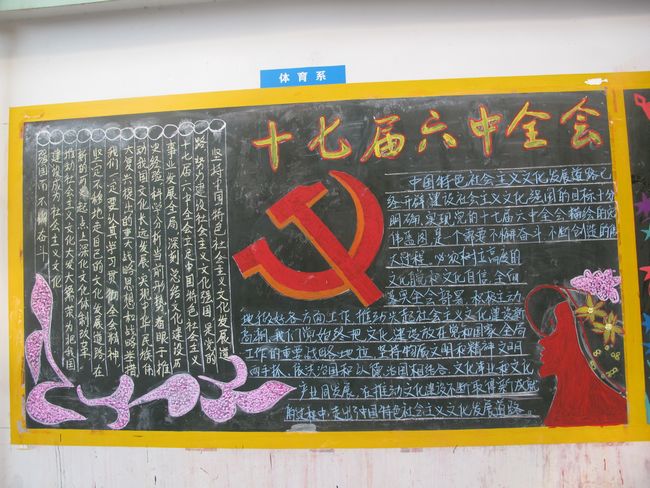 体育系
十七届六中全会
坚持中国特色社会主义文化发展道
路，努力建设社会主义文化强国，党的
十七届六中全会立足中国特色社会主义
事业发展全局，深刻总结文化建设历
史经验，科学分析当前形势，着眼于推
动我国文化长远发展、实现中华民族伟
大复兴，提出的重大战略思想和战略举措
我们一定要认真学习贯彻全会精神
坚定不移地走自己的文化发展道路，在
新的历史起点上深化文化体制改革
推动社会主义文化大发展大繁荣，为把我国
建设成为社会主义文化
强国而不懈奋斗
中国特色社会主义文化发展道路已
经开辟，建设社会主义文化强国的目标十分
明确，实现党的十七届六中全会描绘的宏
伟蓝图是一个需要不懈奋斗、不断创造的伟
大过程，必须树立高度的
文化自觉和文化自信，全面
落实全会部署，积极主动
地做好各方面工作，推动兴起社会主义文化建设新
高潮，我们党始终把文化建设放在党和国家全局
工作的重要战略地位，坚持物质文明和精神文明
两手抓，依法治国和以德治国相结合，文化事业和文化
产业同发展，在推动文化建设不断取得新成就
的过程中，走出了中国特色社会主义文化发展道路